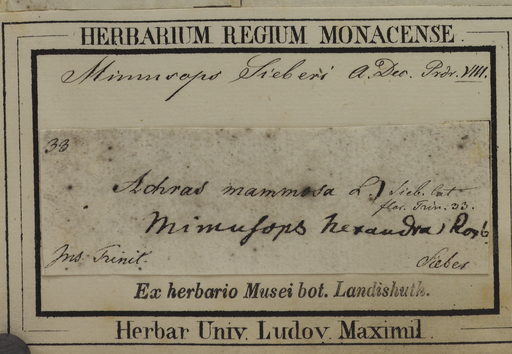 HERBARIUM REGIUM MONACENSE.
Mimusops Sieberi A. Dec. Prdr. VIII.
33
Achras mammosa L.) Sieb. but
flor. Trin. 33.
Mimusops hexandra) Roxb
Ins. Trinit. Sieber
Ex herbario Musei bot. Landishuth.
Herbar Univ. Ludov. Maximil.